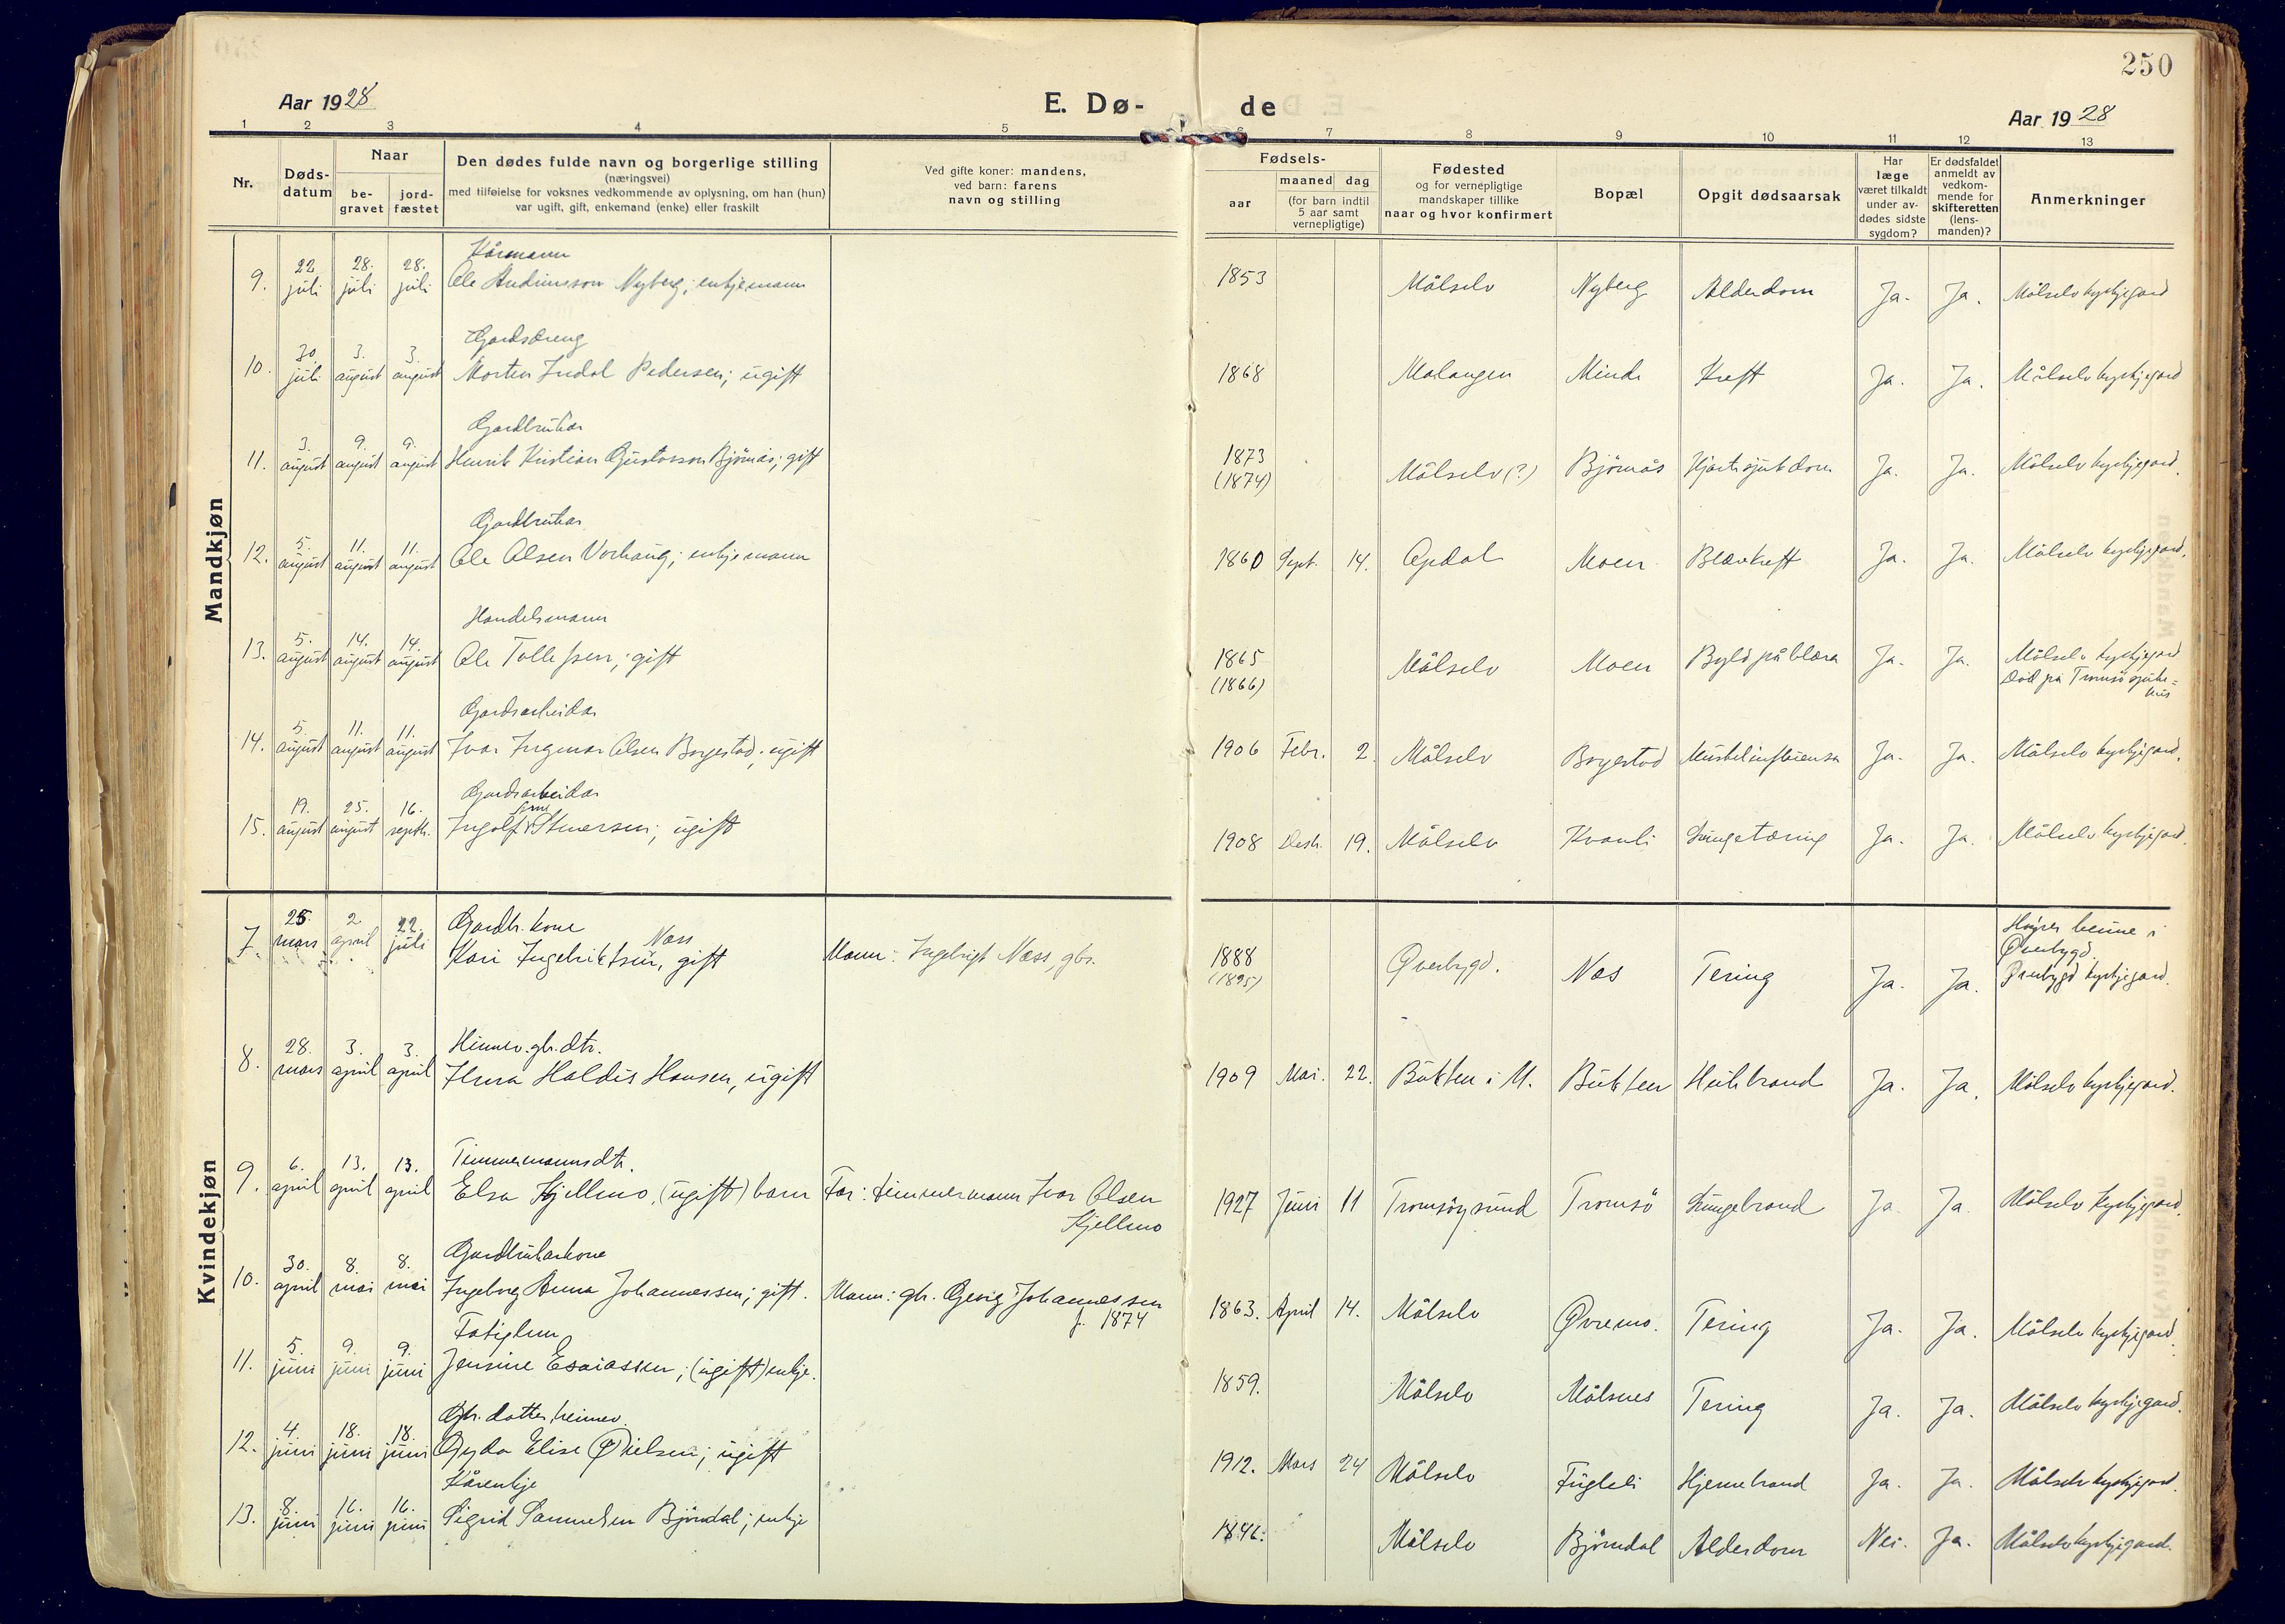 250
Aar 1928
E. Dø-
de
Aar 1928
1 2 3 4 5 7 8 9 10 11 12 13
Nr.
Døds-
datum
Naar
be-
gravet
jord-
fæstet
Den dødes fulde navn og borgerlige stilling
(næringsvei)
med tilføielse for voksnes vedkommende av oplysning, om han (hun)
var ugift, gift, enkemand (enke) eller fraskilt
Ved gifte koner: mandens,
ved barn: farens
navn og stilling
Fødsels-
aar
maaned dag
(for barn indtil
5 aar samt
vernepligtige)
Fødested
og for vernepligtige
mandskaper tillike
naar og hvor konfirmert
Bopæl
Opgit dødsaarsak
Har
læge
været tilkaldt
under av-
dødes sidste
sygdom?
Er dødsfaldet
anmeldt av
vedkom-
mende for
skifteretten
(lens-
manden)?
Anmerkninger
Mandkjøn
Kårmann
9. 22. juli 28. juli 28. juli Ole Andrinsson Nyberg; enkjemann 1853 Målselv Nyberg Alderdom Ja. Ja. Målselv kyrkjegard
Gardsdreng
10. 30. juli 3. august 3. august Morten Indal Pedersen; ugift 1868 Malangen Minde Kreft Ja. Ja. Målselv kyrkjegard
Gardbrukar
11. 3. august 9. august 9. august Henrik Kristian Gustavson Bjørnås; gift 1873 (1874) Målselv (?) Bjørnås Hjartesjukdom Ja. Ja. Målselv kyrkjegard.
Gardbrukar
12. 5. august 11. august 11. august Ole Olsen Vorhaug; enkjemann 1860 Sept. 14. Opdal Moen Blærekreft Ja. Ja. Målselv kyrkjegard.
Handelsmann
13. 5. august 14. august 14. august Ole Tollefsen; gift 1865 (1866) Målselv Moen Byld på blæra Ja. Ja. Målselv kyrkjegard
Død på Tromsø sjuke=
hus
Gardsarbeidar
14. 5. august 11. august 11. august Ivar Ingmar Olsen Borgestad; ugift 1906 Febr. 2. Målselv Borgestad Muskelinfluensa Ja. Ja. Målselv kyrkjegard.
Gardsarbeidar
15. 19. august 25. august 16. septbr. Ingolf Arne Stenersen; ugift 1908 Desbr. 19. Målselv Kvanli Lungetæring Ja. Ja. Målselv kyrkjegard.
Kvindekjøn
Gardbr. kone
7. 25. mars 2. april 22. juli Kari Ingebriktsen, Næss gift Mann: Ingebrigt Næss, gbr. 1888 (1895) Øverbygd. Næs Tering Ja. Ja. Høyrer heime i
Øverbygd.
Øverbygd kyrkjegard.
Heimev. gbr. dtr.
8. 28. mars 3. april 3. april Inva Haldis Hansen, ugift 1909 Mai. 22. Bukten i M. Bukten Halsbrand Ja. Ja. Målselv kyrkjegard.
Timmermannsdtr.
9. 6. april 13. april 13. april Elsa Kjellmo, (ugift) barn Far: timmermann Ivar Olsen
Kjellmo 1927 Juni 11 Tromsøysund Tromsö Lungebrand Ja Ja. Målselv kyrkjegard.
Gardbrukarkone
10. 30. april 8. mai 8. mai Ingeborg Anna Johannessen; gift. Mann: gbr. Georg Johannessen
f. 1874 1863. April 14. Målselv Øvremo. Tering Ja. Ja. Målselv kyrkjegard.
Fatiglem
11. 5. juni 9. juni 9. juni Jensine Esaiassen; (ugift) enkje. 1859. Målselv Målsnes Tering Ja. Ja. Målselv kyrkjegard.
Gbr. datter heimev.
12. 4. juni 18. juni 18. juni Gyda Elise Nielsen; ugift 1912. Mars 24 Målselv Fugleli Hjernebrand Ja. Ja. Målselv kyrkjegard.
Kårenkje
13. 8. juni 16. juni 16. juni Sigrid Samuelsen Bjørndal; enkje 1846. Målselv Bjørndal Alderdom Nei. Ja. Målselv kyrkjegard.